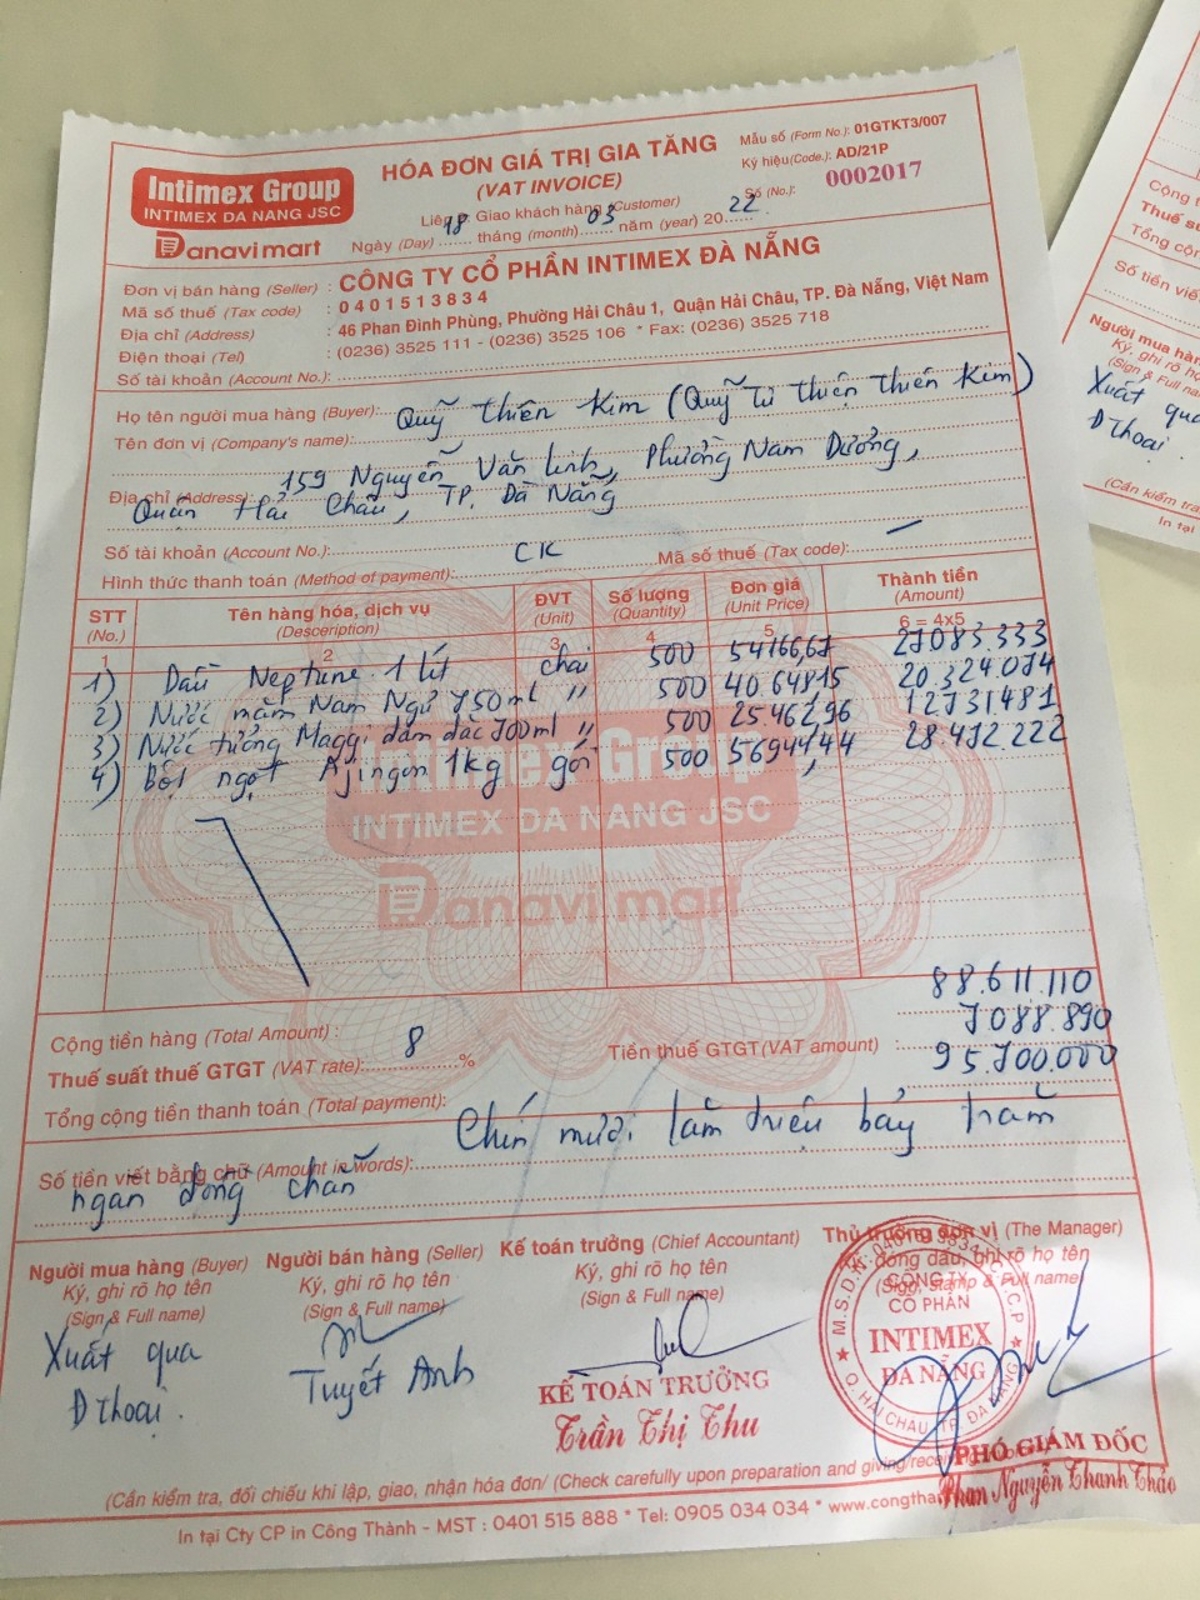 Intimex Group
INTIMEX DA NANG JSC
Danavi mart
HÓA ĐƠN GIÁ TRỊ GIA TĂNG
(VAT INVOICE)
Giao khách hàng (Customer)
Ngày (Day) 18 tháng (month) 03 năm (year) 2022
Mẫu số (Form No.): 01GTKT3/007
Ký hiệu(Code.): AD/21P
Số (No.): 0002017
Đơn vị bán hàng (Seller) : CÔNG TY CỔ PHẦN INTIMEX ĐÀ NẴNG
Mã số thuế (Tax code) : 0401513834
Địa chỉ (Address) : 46 Phan Đình Phùng, Phường Hải Châu 1, Quận Hải Châu, TP. Đà Nẵng, Việt Nam
Điện thoại (Tel) : (0236) 3525 111 - (0236) 3525 106 * Fax: (0236) 3525 718
Số tài khoản (Account No.):
Họ tên người mua hàng (Buyer): Quỹ Thiên Kim (Quỹ Từ thiện Thiên Kim)
Tên đơn vị (Company's name):
159 Nguyễn Văn Linh, Phường Nam Dương,
Địa chỉ (Address): Quận Hải Châu, TP. Đà Nẵng
Số tài khoản (Account No.):
Hình thức thanh toán (Method of payment): CK Mã số thuế (Tax code): —
STT Tên hàng hóa, dịch vụ ĐVT Số lượng Đơn giá Thành tiền
(No.) (Desceription) (Unit) (Quantity) (Unit Price) (Amount)
1 2 3 4 5 6 = 4x5
1) Dầu Neptune 1 lít chai 500 54166,67 27083.333
2) Nước mắm Nam Ngư 750ml " 500 40.648,15 20.324.074
3) Nước tương Maggi đậm đặc 700ml " 500 25.462,96 12731481
4) Bột ngọt Ajingon 1kg gói 500 56944,44 28.472.222
Intimex Group
INTIMEX DA NANG JSC
Danavi mart
Cộng tiền hàng (Total Amount) : 88.611.110
Thuế suất thuế GTGT (VAT rate): 8 % Tiền thuế GTGT(VAT amount) : 7088.890
Tổng cộng tiền thanh toán (Total payment): 95.700.000
Số tiền viết bằng chữ (Amount in words): Chín mươi lăm triệu bảy trăm
ngàn đồng chẵn
Người mua hàng (Buyer) Người bán hàng (Seller) Kế toán trưởng (Chief Accountant) Thủ trưởng đơn vị (The Manager)
Ký, ghi rõ họ tên Ký, ghi rõ họ tên Ký, ghi rõ họ tên đóng dấu, ghi rõ họ tên
(Sign & Full name) (Sign & Full name) (Sign & Full name) (Sign, stamp & Full name)
Xuất qua
Đthoại.
Tuyết Anh
KẾ TOÁN TRƯỞNG
Trần Thị Thu
CÔNG TY
CỔ PHẦN
INTIMEX
ĐÀ NẴNG
Q. HẢI CHÂU - TP. ĐÀ NẴNG
PHÓ GIÁM ĐỐC
Phan Nguyễn Thanh Thảo
(Cần kiểm tra, đối chiếu khi lập, giao, nhận hóa đơn/ (Check carefully upon preparation and giving/
In tại Cty CP in Công Thành - MST : 0401 515 888 * Tel: 0905 034 034 * www.congtha
Cộng
Thuế s
Tổng cộn
Số tiền viế
Người mua hàn
Ký, ghi rõ họ
(Sign & Full na
Xuất qua
Đthoại.
(Cần kiểm tra
In tại